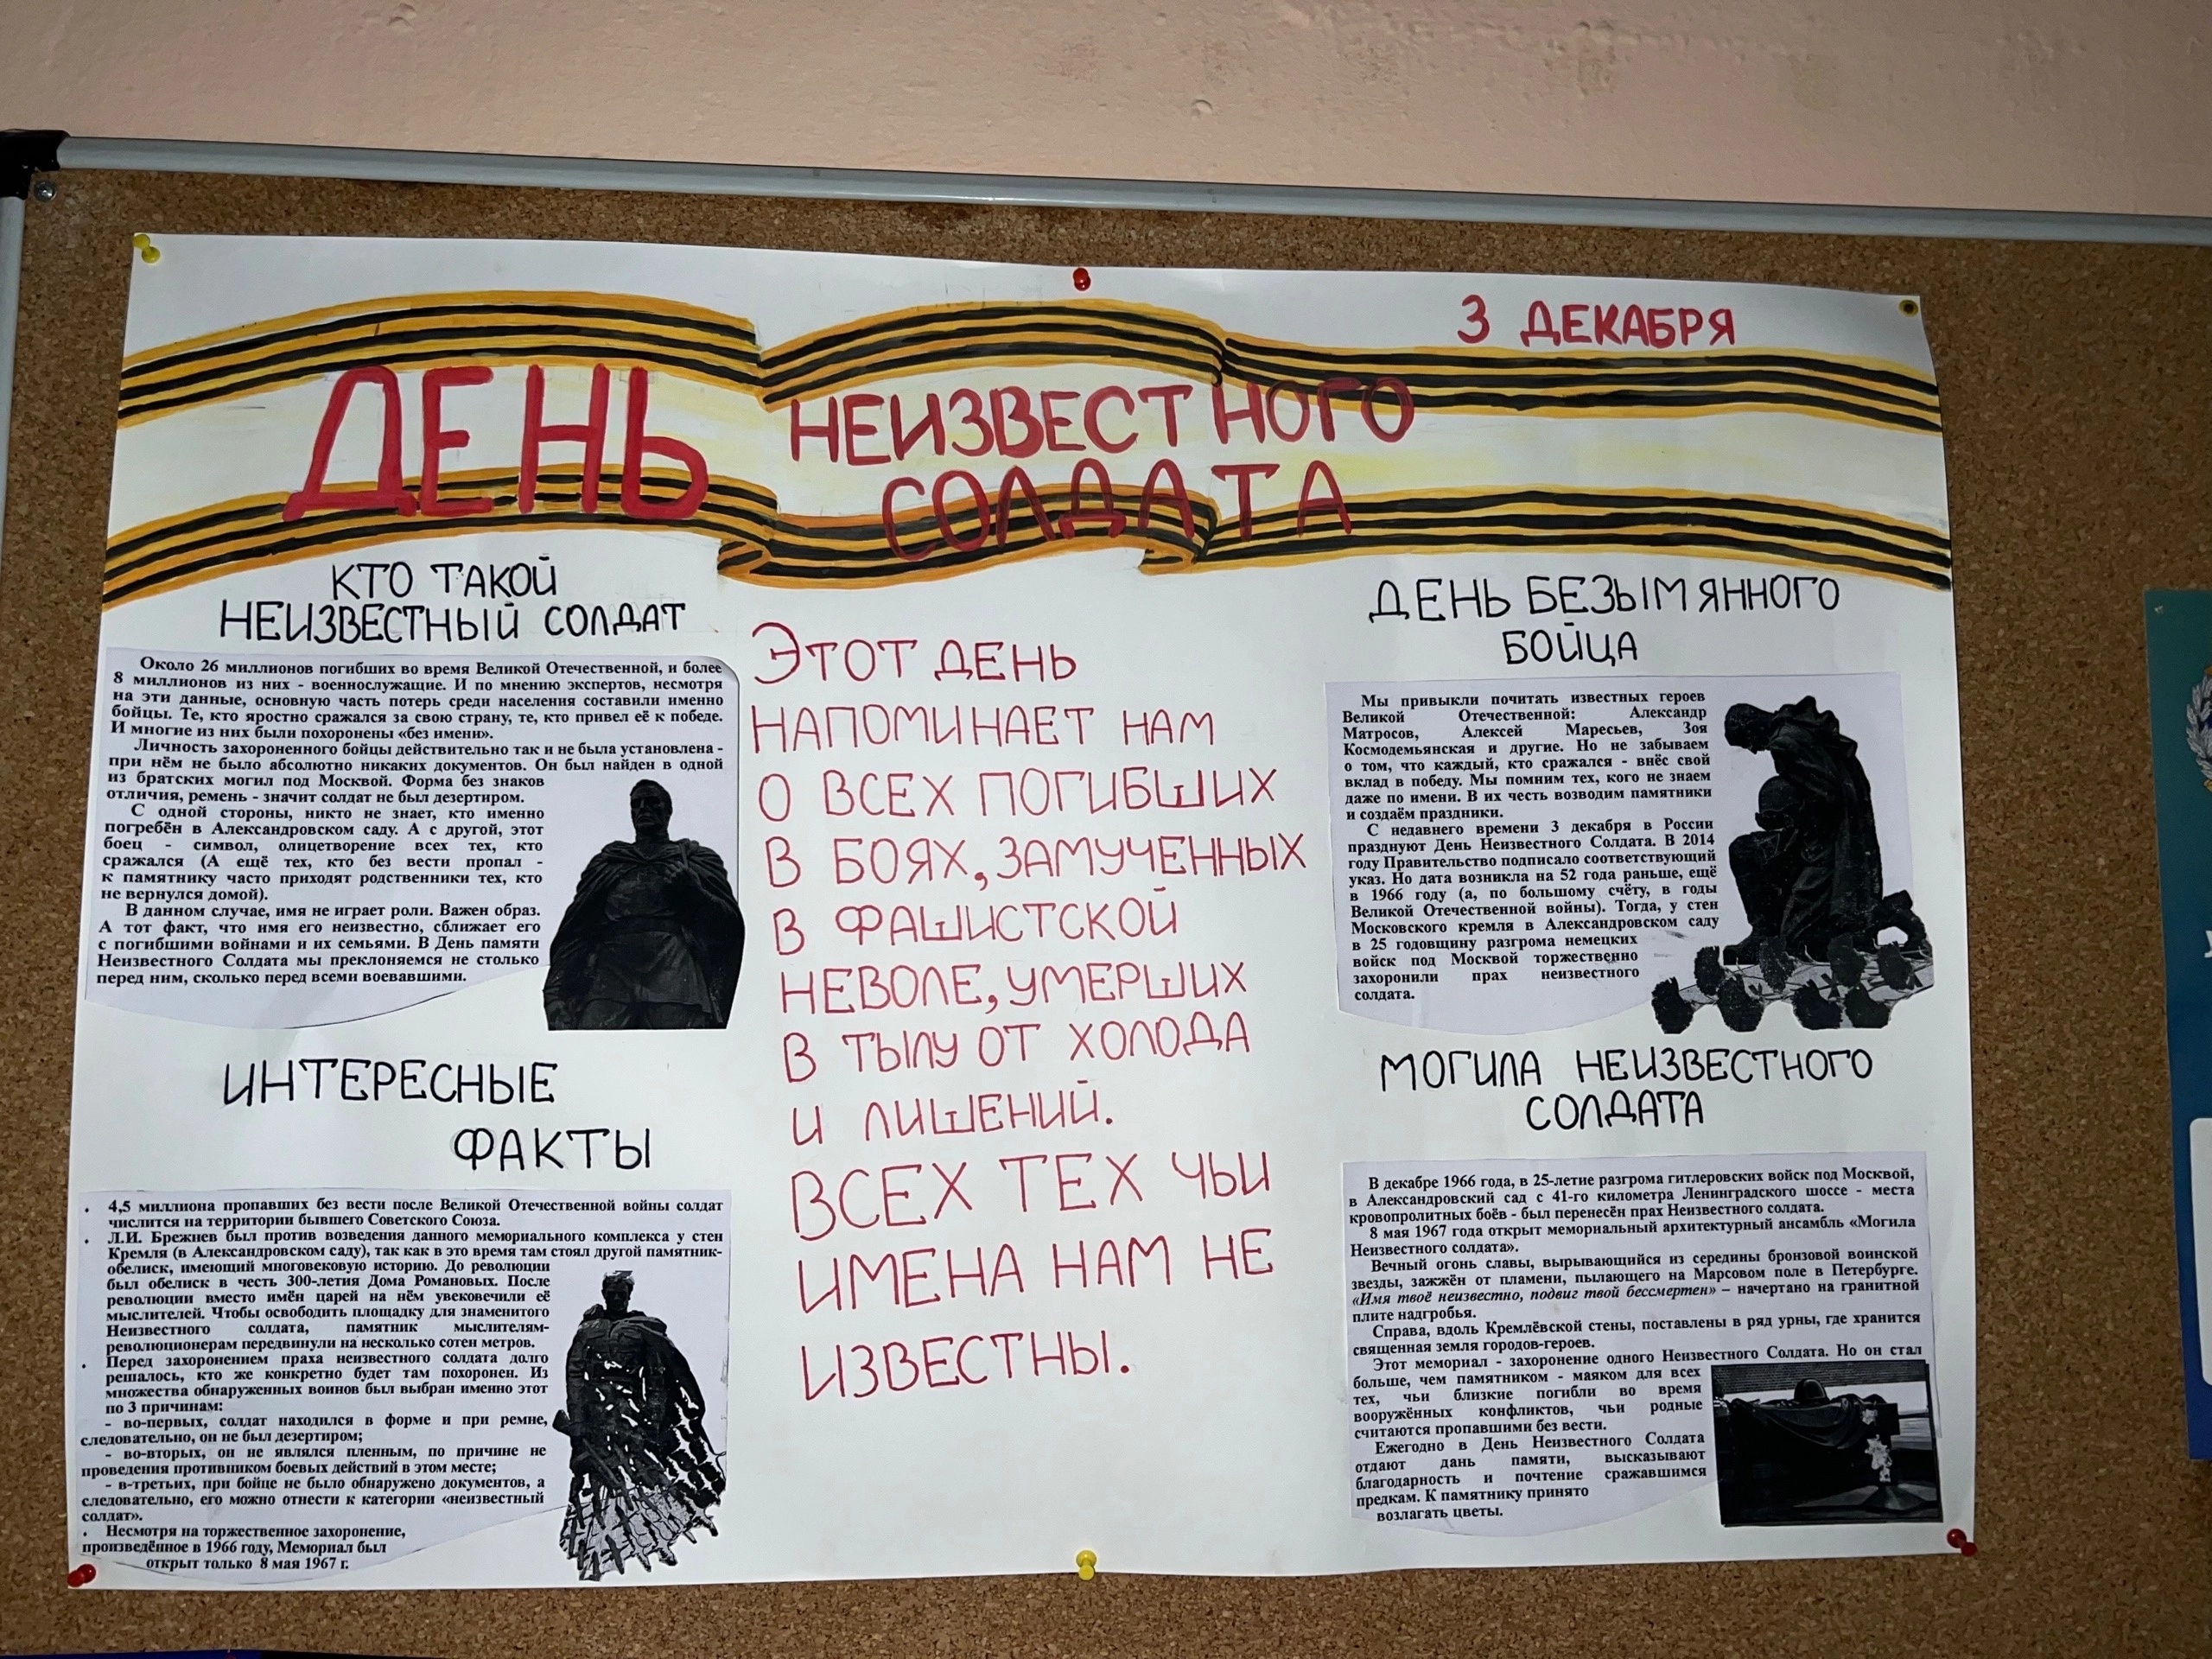 3 ДЕКАБРЯ
ДЕНЬ НЕИЗВЕСТНОГО
СОЛДАТА
КТО ТАКОЙ
НЕИЗВЕСТНЫЙ СОЛДАТ
Около 26 миллионов погибших во время Великой Отечественной, и более
8 миллионов из них - военнослужащие. И по мнению экспертов, несмотря
на эти данные, основную часть потерь среди населения составили именно
бойцы. Те, кто яростно сражался за свою страну, те, кто привел её к победе.
И многие из них были похоронены «без имени».
Личность захороненного бойцы действительно так и не была установлена -
при нём не было абсолютно никаких документов. Он был найден в одной
из братских могил под Москвой. Форма без знаков
отличия, ремень - значит солдат не был дезертиром.
С одной стороны, никто не знает, кто именно
погребён в Александровском саду. А с другой, этот
боец - символ, олицетворение всех тех, кто
сражался (А ещё тех, кто без вести пропал -
к памятнику часто приходят родственники тех, кто
не вернулся домой).
В данном случае, имя не играет роли. Важен образ.
А тот факт, что имя его неизвестно, сближает его
с погибшими войнами и их семьями. В День памяти
Неизвестного Солдата мы преклоняемся не столько
перед ним, сколько перед всеми воевавшими.
ИНТЕРЕСНЫЕ
ФАКТЫ
• 4,5 миллиона пропавших без вести после Великой Отечественной войны солдат
числится на территории бывшего Советского Союза.
• Л.И. Брежнев был против возведения данного мемориального комплекса у стен
Кремля (в Александровском саду), так как в это время там стоял другой памятник-
обелиск, имеющий многовековую историю. До революции
был обелиск в честь 300-летия Дома Романовых. После
революции вместо имён царей на нём увековечили её
мыслителей. Чтобы освободить площадку для знаменитого
Неизвестного солдата, памятник мыслителям-
революционерам передвинули на несколько сотен метров.
• Перед захоронением праха неизвестного солдата долго
решалось, кто же конкретно будет там похоронен. Из
множества обнаруженных воинов был выбран именно этот
по 3 причинам:
- во-первых, солдат находился в форме и при ремне,
следовательно, он не был дезертиром;
- во-вторых, он не являлся пленным, по причине не
проведения противником боевых действий в этом месте;
- в-третьих, при бойце не было обнаружено документов, а
следовательно, его можно отнести к категории «неизвестный
солдат».
• Несмотря на торжественное захоронение,
произведённое в 1966 году, Мемориал был
открыт только 8 мая 1967 г.
ЭТОТ ДЕНЬ
НАПОМИНАЕТ НАМ
О ВСЕХ ПОГИБШИХ
В БОЯХ, ЗАМУЧЕННЫХ
В ФАШИСТСКОЙ
НЕВОЛЕ, УМЕРШИХ
В ТЫЛУ ОТ ХОЛОДА
И ЛИШЕНИЙ.
ВСЕХ ТЕХ ЧЬИ
ИМЕНА НАМ НЕ
ИЗВЕСТНЫ.
ДЕНЬ БЕЗЫМЯННОГО
БОЙЦА
Мы привыкли почитать известных героев
Великой Отечественной: Александр
Матросов, Алексей Маресьев, Зоя
Космодемьянская и другие. Но не забываем
о том, что каждый, кто сражался - внёс свой
вклад в победу. Мы помним тех, кого не знаем
даже по имени. В их честь возводим памятники
и создаём праздники.
С недавнего времени 3 декабря в России
празднуют День Неизвестного Солдата. В 2014
году Правительство подписало соответствующий
указ. Но дата возникла на 52 года раньше, ещё
в 1966 году (а, по большому счёту, в годы
Великой Отечественной войны). Тогда, у стен
Московского кремля в Александровском саду
в 25 годовщину разгрома немецких
войск под Москвой торжественно
захоронили прах неизвестного
солдата.
МОГИЛА НЕИЗВЕСТНОГО
СОЛДАТА
В декабре 1966 года, в 25-летие разгрома гитлеровских войск под Москвой,
в Александровский сад с 41-го километра Ленинградского шоссе - места
кровопролитных боёв - был перенесён прах Неизвестного солдата.
8 мая 1967 года открыт мемориальный архитектурный ансамбль «Могила
Неизвестного солдата».
Вечный огонь славы, вырывающийся из середины бронзовой воинской
звезды, зажжён от пламени, пылающего на Марсовом поле в Петербурге.
«Имя твоё неизвестно, подвиг твой бессмертен» – начертано на гранитной
плите надгробья.
Справа, вдоль Кремлёвской стены, поставлены в ряд урны, где хранится
священная земля городов-героев.
Этот мемориал - захоронение одного Неизвестного Солдата. Но он стал
больше, чем памятником - маяком для всех
тех, чьи близкие погибли во время
вооружённых конфликтов, чьи родные
считаются пропавшими без вести.
Ежегодно в День Неизвестного Солдата
отдают дань памяти, высказывают
благодарность и почтение сражавшимся
предкам. К памятнику принято
возлагать цветы.